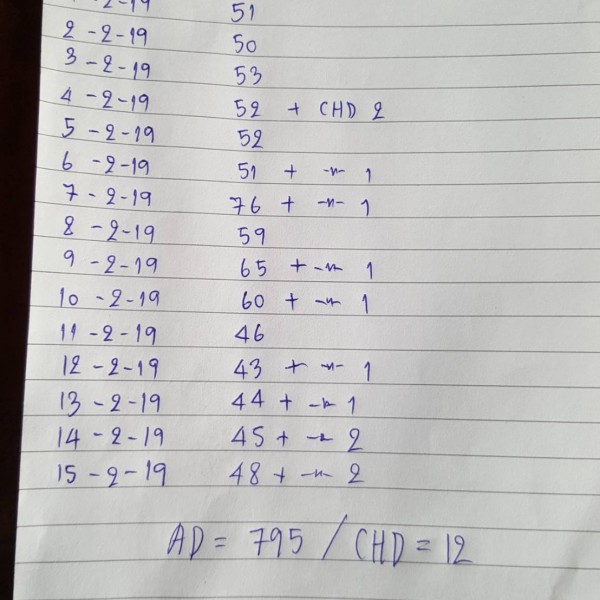 -2-19 51
2-2-19 50
3-2-19 53
4-2-19 52 + CHD 2
5-2-19 52
6-2-19 51 + -〃- 1
7-2-19 76 + -〃- 1
8-2-19 59
9-2-19 65 + -〃- 1
10-2-19 60 + -〃- 1
11-2-19 46
12-2-19 43 + -〃- 1
13-2-19 44 + -〃- 1
14-2-19 45 + -〃- 2
15-2-19 48 + -〃- 2
AD = 795 / CHD = 12